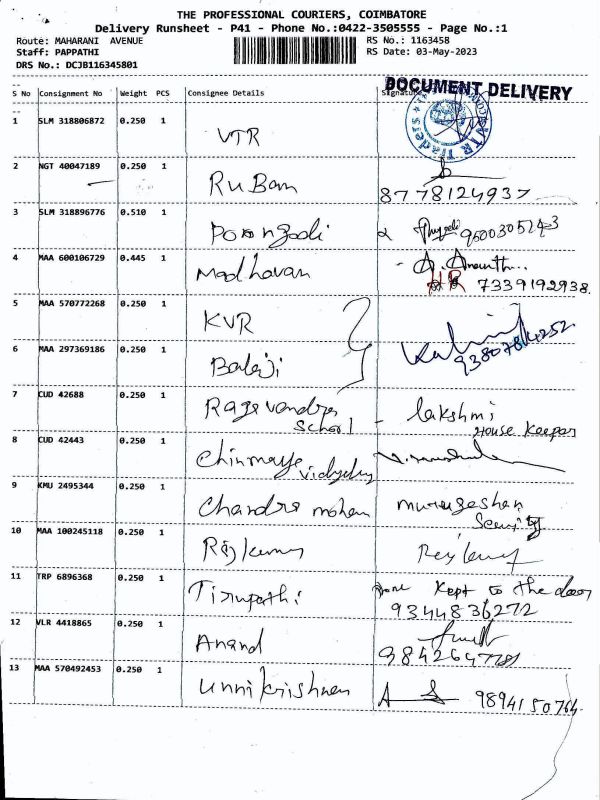 THE PROFESSIONAL COURIERS, COIMBATORE
Delivery Runsheet - P41 - Phone No.:0422-3505555 - Page No.:1
Route: MAHARANI AVENUE RS No.: 1163458
Staff: PAPPATHI RS Date: 03-May-2023
DRS No.: DCJB116345801
S No Consignment No Weight PCS Consignee Details Signature
DOCUMENT DELIVERY
1 SLM 318806872 0.250 1 VTR
VTR Traders
2 NGT 40047189 0.250 1 RuBan 8778124937
3 SLM 318896776 0.510 1 Poongodi 9600305243
4 MAA 600106729 0.445 1 Madhavan A. Ananth..
HR 7339192938
5 MAA 570772268 0.250 1 KVR
6 MAA 297369186 0.250 1 Balaji
7 CUD 42688 0.250 1 Ragavendra - lakshmi
School House keeper
8 CUD 42443 0.250 1 Chinmaya Vidyalaya
9 KMU 2495344 0.250 1 Chandra mohan murugeshan
10 MAA 100245118 0.250 1 Rajkumar
11 TRP 6896368 0.250 1 Tirupathi kept to the door
9344836272
12 VLR 4418865 0.250 1 Anand
13 MAA 570492453 0.250 1 Unni krishnan 9894150764